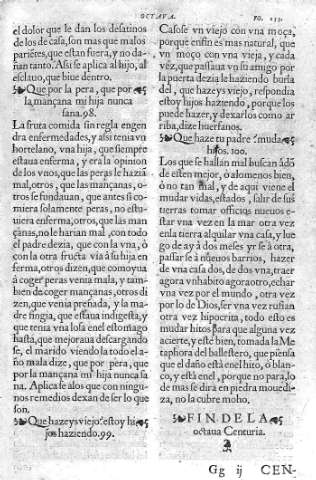 OCTAVA.
el dolor que le dan los desatinos
de los de casa, son mas que malos
pariẽtes, que estan fuera, y no da-
ñan tanto. Assi se aplica al hijo, al
esclauo, que biue dentro.
Que por la pera, que por
la mançana mi hija nunca
sana. 98.
La fruta comida sin regla engen
dra enfermedades, y assi tenia vn
hortelano, vna hija, que siempre
estaua enferma, y era la opinion
de los vnos, que las peras le haziã
mal, otros, que las mançanas, o-
tros se fundauan, que antes si co-
miera solamente peras, no estu-
uiera enferma, otros, que las man
çanas, no le harian mal, con todo
el padre dezia, que con la vna, ò
con la otra fructa via à su hija en
ferma, otros dizen, que como yua
à coger peras venia mala, y tam-
bien de coger mançanas, otros di
zen, que venia preñada, y la ma-
dre fingia, que estaua indigesta, y
que tenia vna losa en el estomago
hasta, que mejoraua descargando
se, el marido viendo la todo el a-
ño mala dize, que por pera, que
por la mançana mi hija nunca sa
na. Aplicase a los que con ningu-
nos remedios dexan de ser lo que
son.
Que hazeys viejo? estoy hi-
jos haziendo. 99.
Casose vn viejo con vna moça,
porque en fin es mas natural, que
vn moço con vna vieja, y cada
vez, que passaua vn su amigo por
la puerta dezia le haziendo burla
del, que hazeys viejo, respondia
estoy hijos haziendo, porque los
puede hazer, y dexarlos como ar
riba, dize huerfanos.
Que haze tu padre? muda
hitos. 100.
Los que se hallan mal buscan àdõ
de esten mejor, ò alomenos bien,
ò no tan mal, y de aqui viene el
mudar vidas, estados, salir de sus
tierras tomar officios nueuos e-
star vna vez en la mar otra vez
en la tierra alquilar vna casa, y lue
go de ay à dos meses yr se à otra,
passar se à nueuos barrios, hazer
de vna casa dos, de dos vna, traer
agora vn habito agora otro, echar
vna vez por el mundo, otra vez
por lo de Dios, ser vna vez rufian
otra vez hipocrita, todo esto es
mudar hitos para que alguna vez
acierte, y este bien, tomada la Me
taphora del ballestero, que piensa
que el daño està en el hito, ò blan-
co, y està en el, porque no para, lo
de mas se dira en piedra mouedi-
za, no la cubre moho.
FIN DE LA
octaua Centuria.
Gg ij CEN-